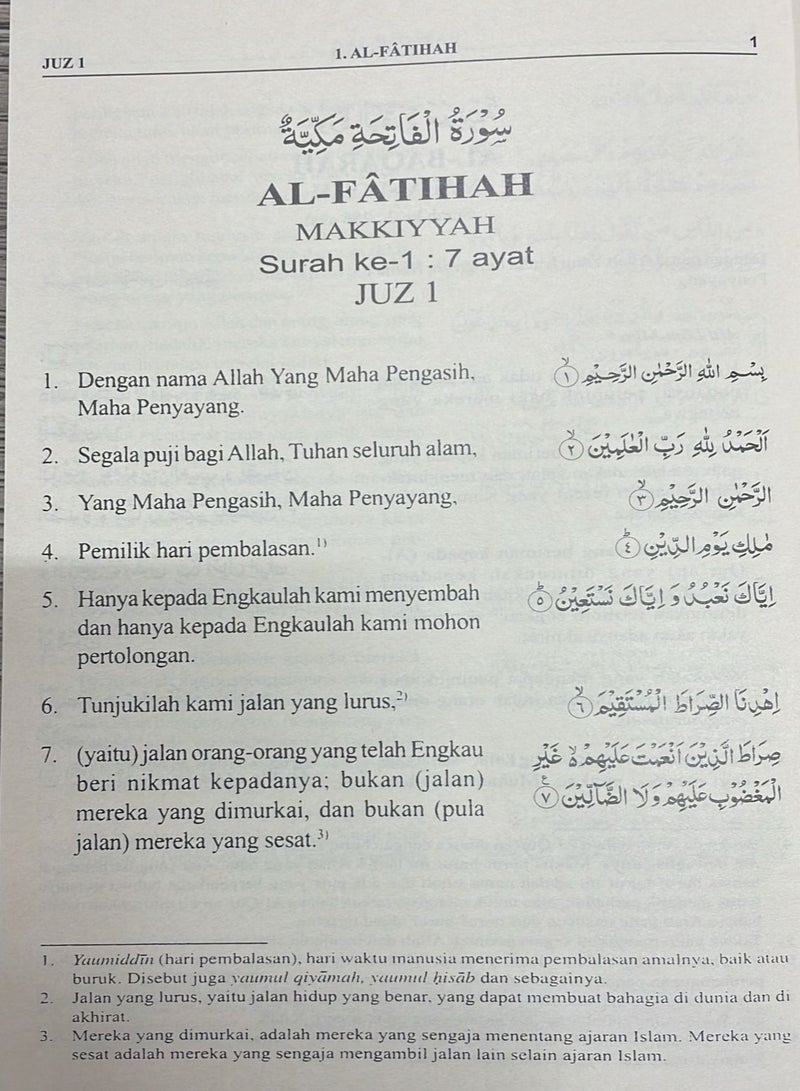 JUZ 1 1. AL-FÂTIHAH 1
سُوْرَةُ الْفَاتِحَةِ مَكِّيَّةٌ
AL-FÂTIHAH
MAKKIYYAH
Surah ke-1 : 7 ayat
JUZ 1
1. Dengan nama Allah Yang Maha Pengasih,
Maha Penyayang.
بِسْمِ اللّٰهِ الرَّحْمٰنِ الرَّحِيْمِۙ ١
2. Segala puji bagi Allah, Tuhan seluruh alam,
اَلْحَمْدُ لِلّٰهِ رَبِّ الْعٰلَمِيْنَۙ ٢
3. Yang Maha Pengasih, Maha Penyayang,
الرَّحْمٰنِ الرَّحِيْمِۙ ٣
4. Pemilik hari pembalasan.¹⁾
مٰلِكِ يَوْمِ الدِّيْنِۗ ٤
5. Hanya kepada Engkaulah kami menyembah
dan hanya kepada Engkaulah kami mohon
pertolongan.
اِيَّاكَ نَعْبُدُ وَاِيَّاكَ نَسْتَعِيْنُۗ ٥
6. Tunjukilah kami jalan yang lurus,²⁾
اِهْدِنَا الصِّرَاطَ الْمُسْتَقِيْمَۙ ٦
7. (yaitu) jalan orang-orang yang telah Engkau
beri nikmat kepadanya; bukan (jalan)
mereka yang dimurkai, dan bukan (pula
jalan) mereka yang sesat.³⁾
صِرَاطَ الَّذِيْنَ اَنْعَمْتَ عَلَيْهِمْ ەۙ غَيْرِ
الْمَغْضُوْبِ عَلَيْهِمْ وَلَا الضَّاۤلِّيْنَࣖ ٧
1. Yaumiddīn (hari pembalasan), hari waktu manusia menerima pembalasan amalnya, baik atau
buruk. Disebut juga yaumul qiyāmah, yaumul ḥisāb dan sebagainya.
2. Jalan yang lurus, yaitu jalan hidup yang benar, yang dapat membuat bahagia di dunia dan di
akhirat.
3. Mereka yang dimurkai, adalah mereka yang sengaja menentang ajaran Islam. Mereka yang
sesat adalah mereka yang sengaja mengambil jalan lain selain ajaran Islam.